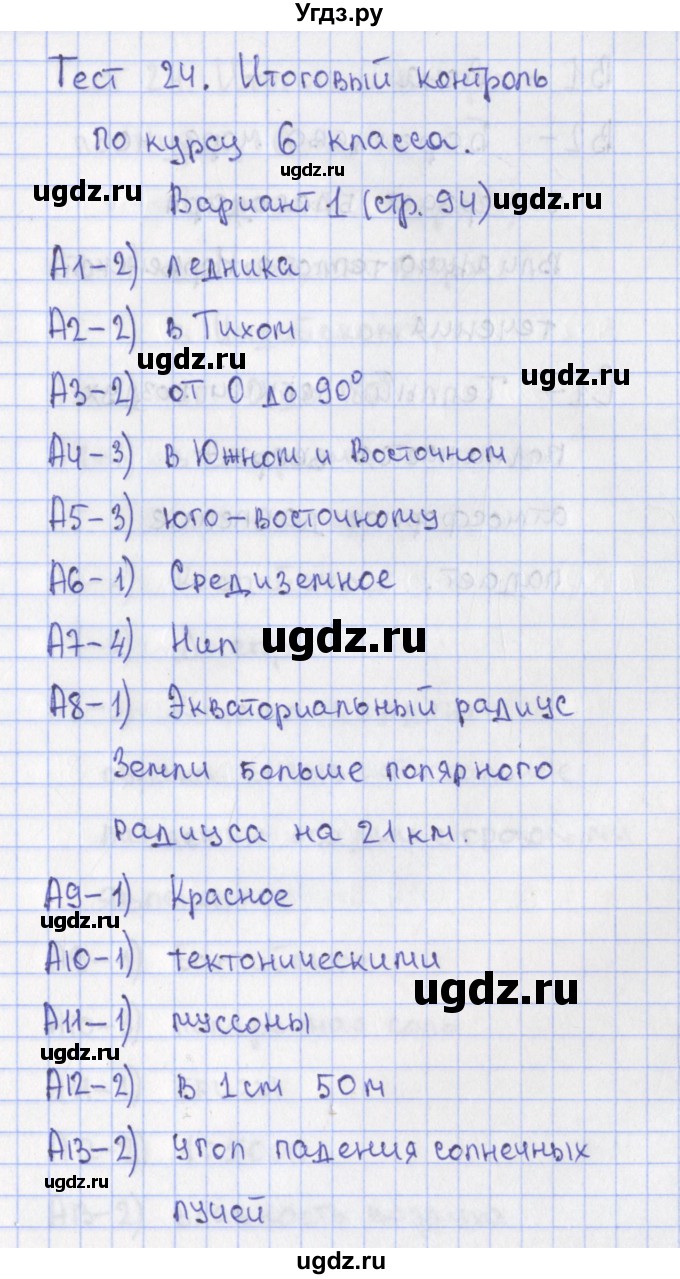 Угдз.ру
Тест 24. Итоговый контроль
по курсу 6 класса.
ugdz.ru
ugdz.ru
Вариант 1 (стр. 94)
ugdz.ru
А1-2) ледника
А2-2) в Тихом
ugdz.ru
ugdz.ru
А3-2) от 0 до 90°
А4-3) в Южном и Восточном
А5-3) юго-восточному
А6-1) Средиземное
А7-4) Нил
ugdz.ru
А8-1) Экваториальный радиус
Земли больше полярного
радиуса на 21 км.
А9-1) Красное
ugdz.ru
А10-1) тектоническими
ugdz.ru
А11-1) муссоны
ugdz.ru
А12-2) в 1 см 50 м
А13-2) угол падения солнечных
ugdz.ru
лучей
ugdz.ru